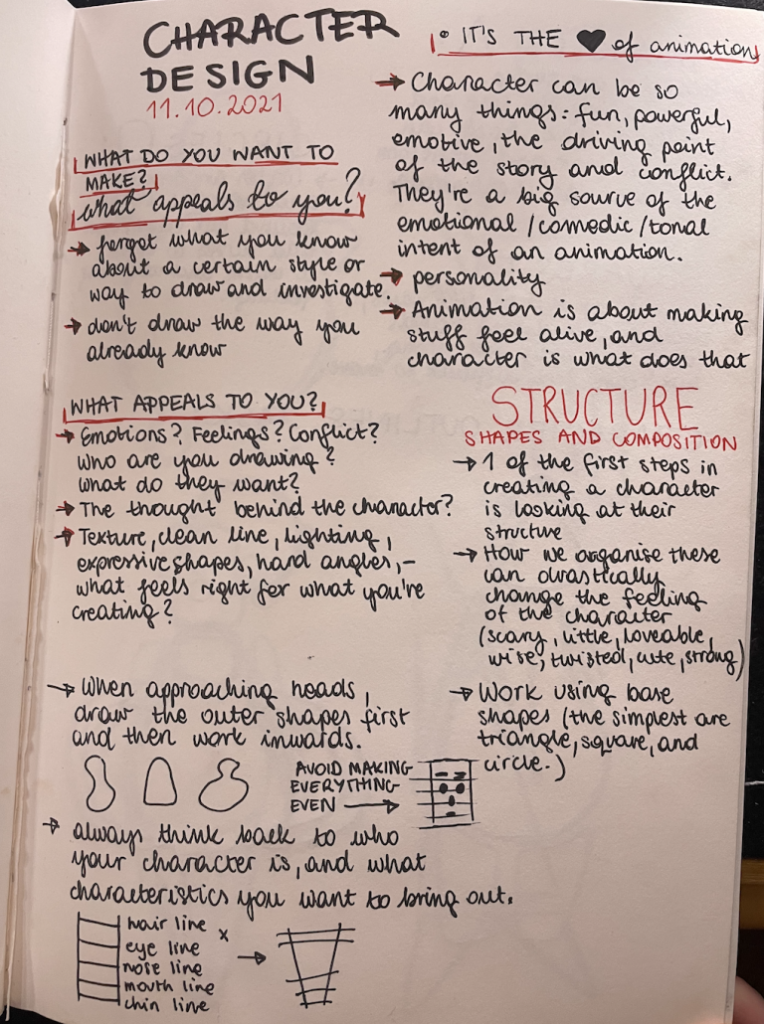 CHARACTER
DESIGN
11.10.2021
WHAT DO YOU WANT TO
MAKE?
what appeals to you?
→ forget what you know
about a certain style or
way to draw and investigate.
→ don't draw the way you
already know
• IT'S THE ♥ of animation
→ Character can be so
many things: fun, powerful,
emotive, the driving point
of the story and conflict.
They're a big source of the
emotional/comedic/tonal
intent of an animation.
→ personality
→ Animation is about making
stuff feel alive, and
character is what does that
WHAT APPEALS TO YOU?
→ Emotions? Feelings? Conflict?
Who are you drawing?
What do they want?
→ The thought behind the character?
→ Texture, clean line, lighting,
expressive shapes, hard angles, –
what feels right for what you're
creating?
STRUCTURE
SHAPES AND COMPOSITION
→ 1 of the first steps in
creating a character
is looking at their
structure
→ How we organise these
can drastically
change the feeling
of the character
(scary, little, loveable,
wise, twisted, cute, strong)
→ Work using base
shapes (the simplest are
triangle, square, and
circle.)
→ When approaching heads,
draw the outer shapes first
and then work inwards.
AVOID MAKING
EVERYTHING
EVEN →
→ always think back to who
your character is, and what
characteristics you want to bring out.
hair line x
eye line →
nose line
mouth line
chin line